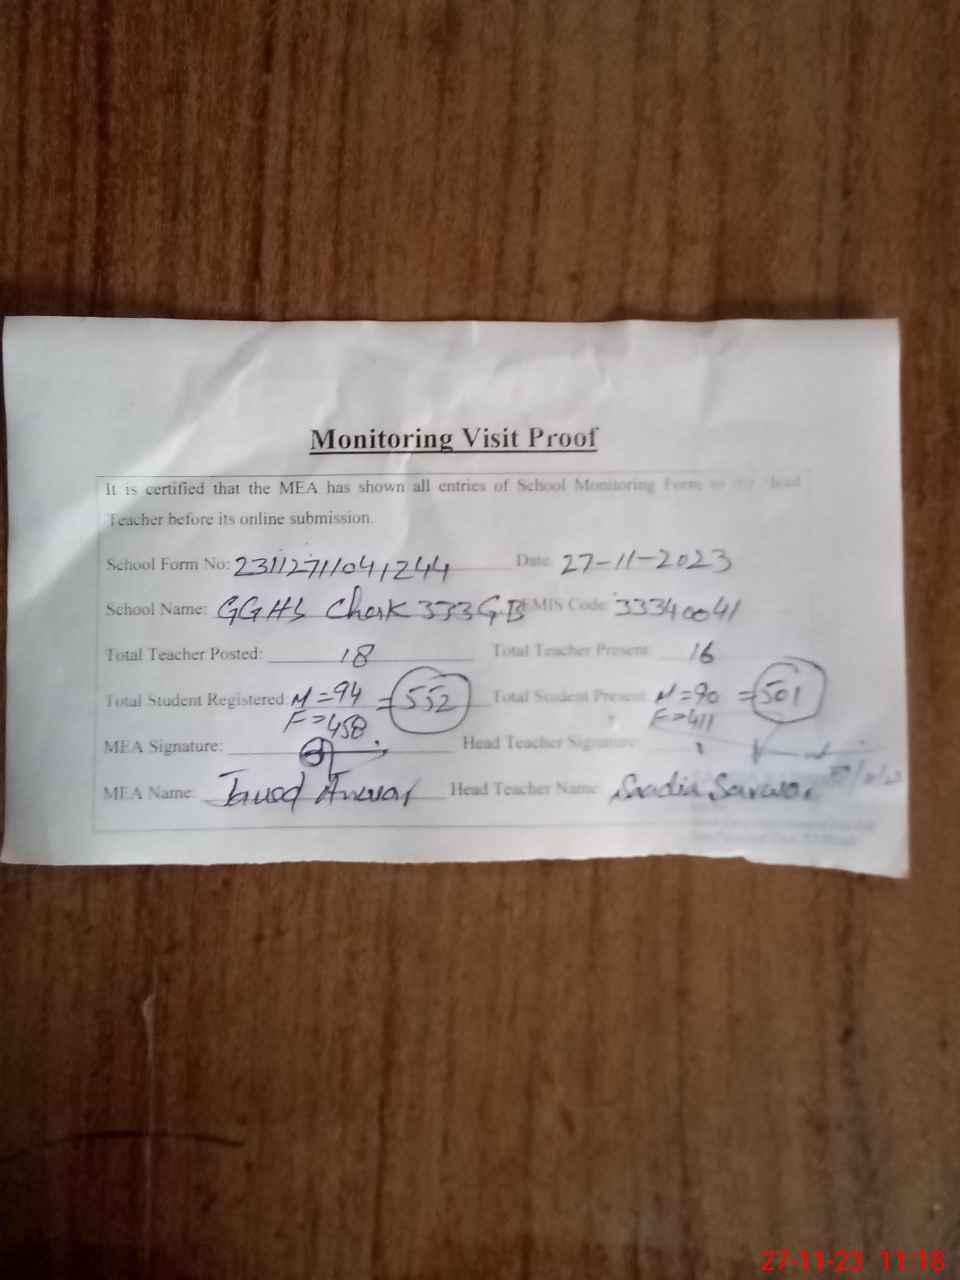 Monitoring Visit Proof
It is certified that the MEA has shown all entries of School Monitoring Form to the Head
Teacher before its online submission.
School Form No: 23112711041244 Date: 27-11-2023
School Name: GGHS Chak 333 GB EMIS Code: 33340041
Total Teacher Posted: 18 Total Teacher Present: 16
Total Student Registered: M=94 =552 Total Student Present: M=90 =501
F=458 F=411
MEA Signature: Head Teacher Signature:
MEA Name: Javed Anwar Head Teacher Name: Saadia Sarwar
27-11-23 11:18